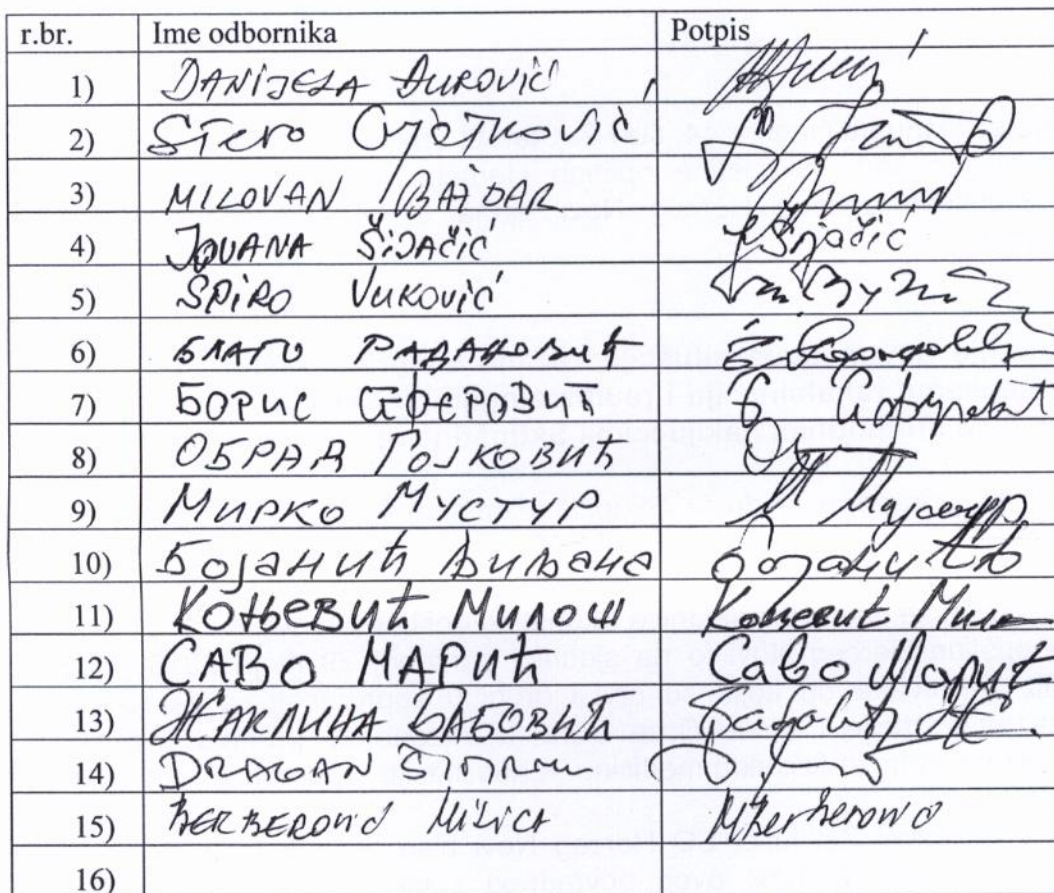 r.br. Ime odbornika Potpis
1) DANIJELA ĐUROVIĆ
2) Stevo Cvjetković
3) MILOVAN BAJDAR
4) JOVANA ŠIJAČIĆ JŠijačić
5) SPIRO VUKOVIĆ
6) БЛАГО РАДАНОВИЋ
7) БОРИС СЕФЕРОВИЋ
8) ОБРАД ГОЈКОВИЋ
9) МИРКО МУСТУР М Мустур
10) Бојанић Биљана Бојанић Б
11) Коњевић Милош Коњевић Милош
12) САВО МАРИЋ Саво Марић
13) ЖАКЛИНА БАБОВИЋ Бабовић Ж.
14) DRAGAN
15) BERBEROVIĆ MILICA MBerberović
16)